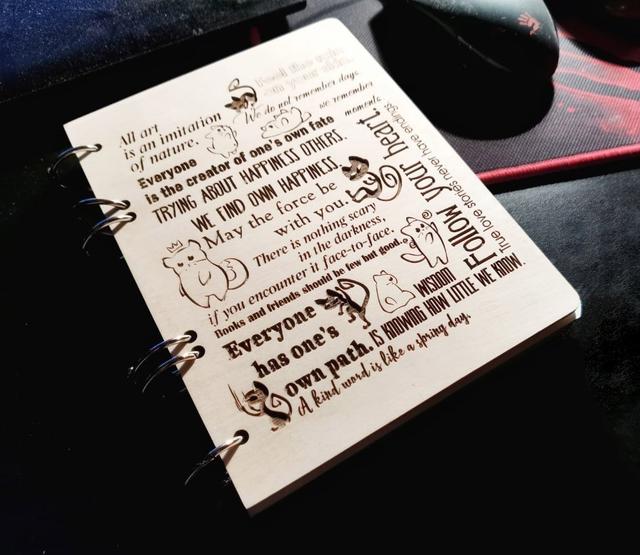 Feel the rain
on your skin.
We do not remember days,
we remember
moments.
All art
is an imitation
of nature.
Everyone
is the creator of one's own fate
TRYING ABOUT HAPPINESS OTHERS,
WE FIND OWN HAPPINESS.
May the force be
with you.
There is nothing scary
in the darkness,
if you encounter it face-to-face.
Books and friends should be few but good.
Everyone
has one's
own path.
WISDOM
IS KNOWING HOW LITTLE WE KNOW.
A kind word is like a spring day.
Follow your heart.
True love stories never have endings.